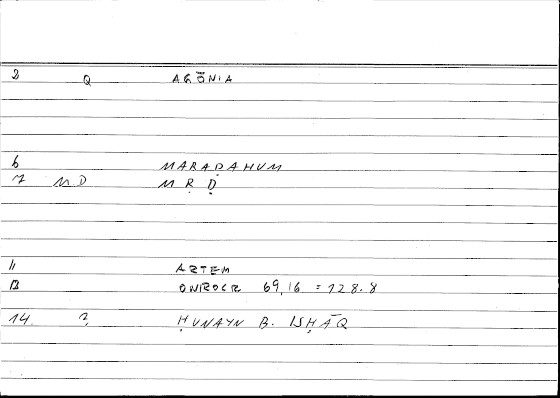 3 Q AGŌNIA
6 MARAḌAHUM
7 MD M R Ḍ
11 ARTEM
13 ONIROCR 69,16 = 128.8
14. ? ḤUNAYN B. ISḤĀQ